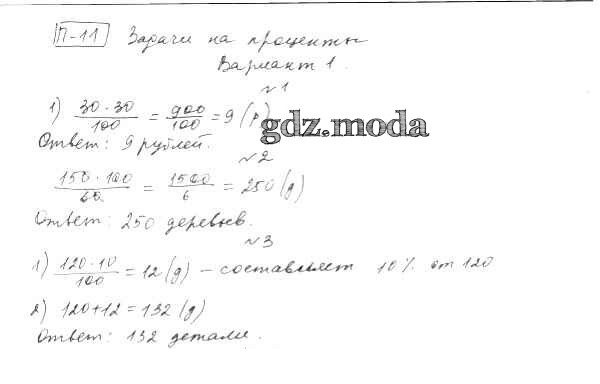 П-11 Задачи на проценты
Вариант 1.
№1
1) 30·30/100 = 900/100 = 9 (р)
gdz.moda
Ответ: 9 рублей.
№2
150·100/60 = 1500/6 = 250 (д)
Ответ: 250 деревьев.
№3
1) 120·10/100 = 12 (д) – составляет 10% от 120
2) 120+12 = 132 (д)
Ответ: 132 детали.